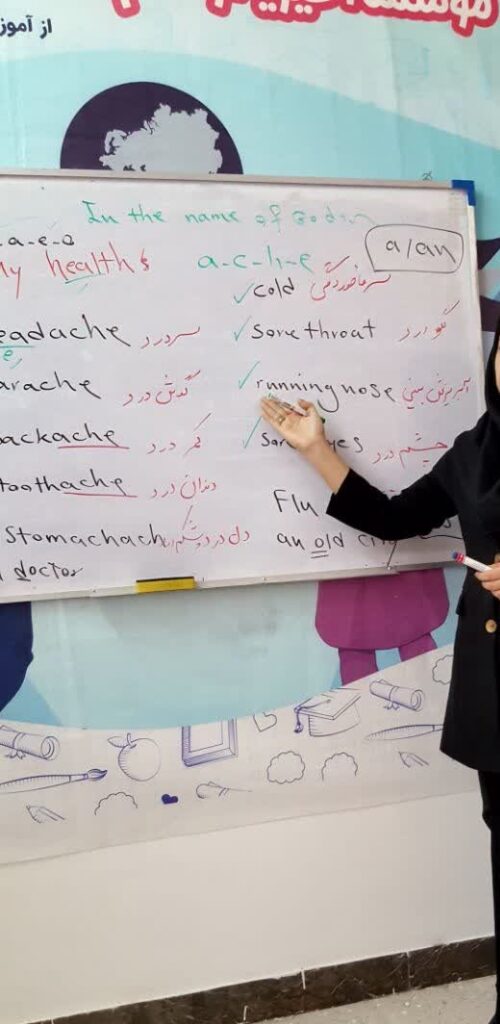 از آموز
In the name of God
a-e-o
my health
a-c-h-e
a/an
cold سرماخوردگی
eadache سردرد
sore throat گلودرد
arache گوش درد
runningnose آبریزش بینی
ackache کمر درد
sore yes چشم درد
toothache دندان درد
Flu
Stomachach دل درد
an old city
doctor